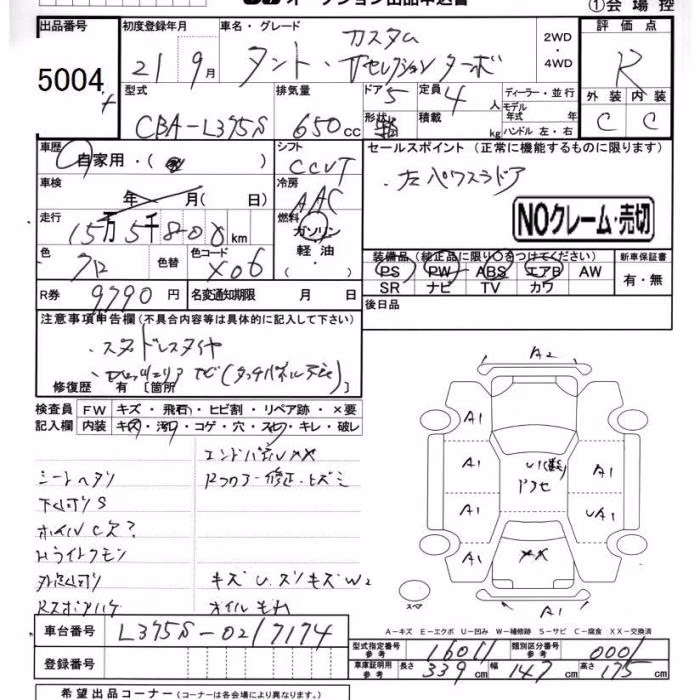 オークション出品申込書
①会場控
出品番号
5004
初度登録年月
21 9月
車名・グレード
カスタム
タント・Vセレクションターボ
2WD
・
4WD
評価点
R
型式
CBA-L375S
排気量
650cc
ドア 5
形状
定員 4人
積載 kg
ディーラー・並行
モデル
年式 年
ハンドル 左・右
外装 内装
C C
車歴
自家用・( )
シフト
CCVT
セールスポイント(正常に機能するものに限ります)
・左パワスラドア
車検
年 月( 日)
冷房
AAC
NOクレーム・売切
走行
15万5千800km
燃料
ガソリン
軽油
( )
色
色替
色コード
X06
装備品(純正品に限り○をつけてください)
PS PW ABS エアB AW
SR ナビ TV カワ
新車保証書
有・無
R券 9790円
名変通知期限 月 日
後日品
注意事項申告欄(不具合内容等は具体的に記入して下さい)
・スタッドレスタイヤ
ナビ(タッチパネル不良)
修復歴 有〔箇所
検査員
記入欄
FW キズ・飛石・ヒビ割・リペア跡・×要
内装 キズ・汚れ・コゲ・穴・スレ・キレ・破レ
エンドパネルXX
シートヘタリ
Rフロアー修正・ヒズミ
下廻サビS
ホイルC欠?
Hライトクモリ
キズU.ズリキズW2
オイルもれ
車台番号 L375S-0217174
登録番号
A2
A1
A1
A1
U1
A1
A1
UA1
A1
A1
XX
A1
スペア
A-キズ E-エクボ U-凹み W-補修跡 S-サビ C-腐食 XX-交換済
型式指定番号
参考
16011
類別区分番号
参考
0001
車庫証明用
参考
長さ 339cm 幅 147cm 高さ 175cm
希望出品コーナー(コーナーは各会場により異なります。)